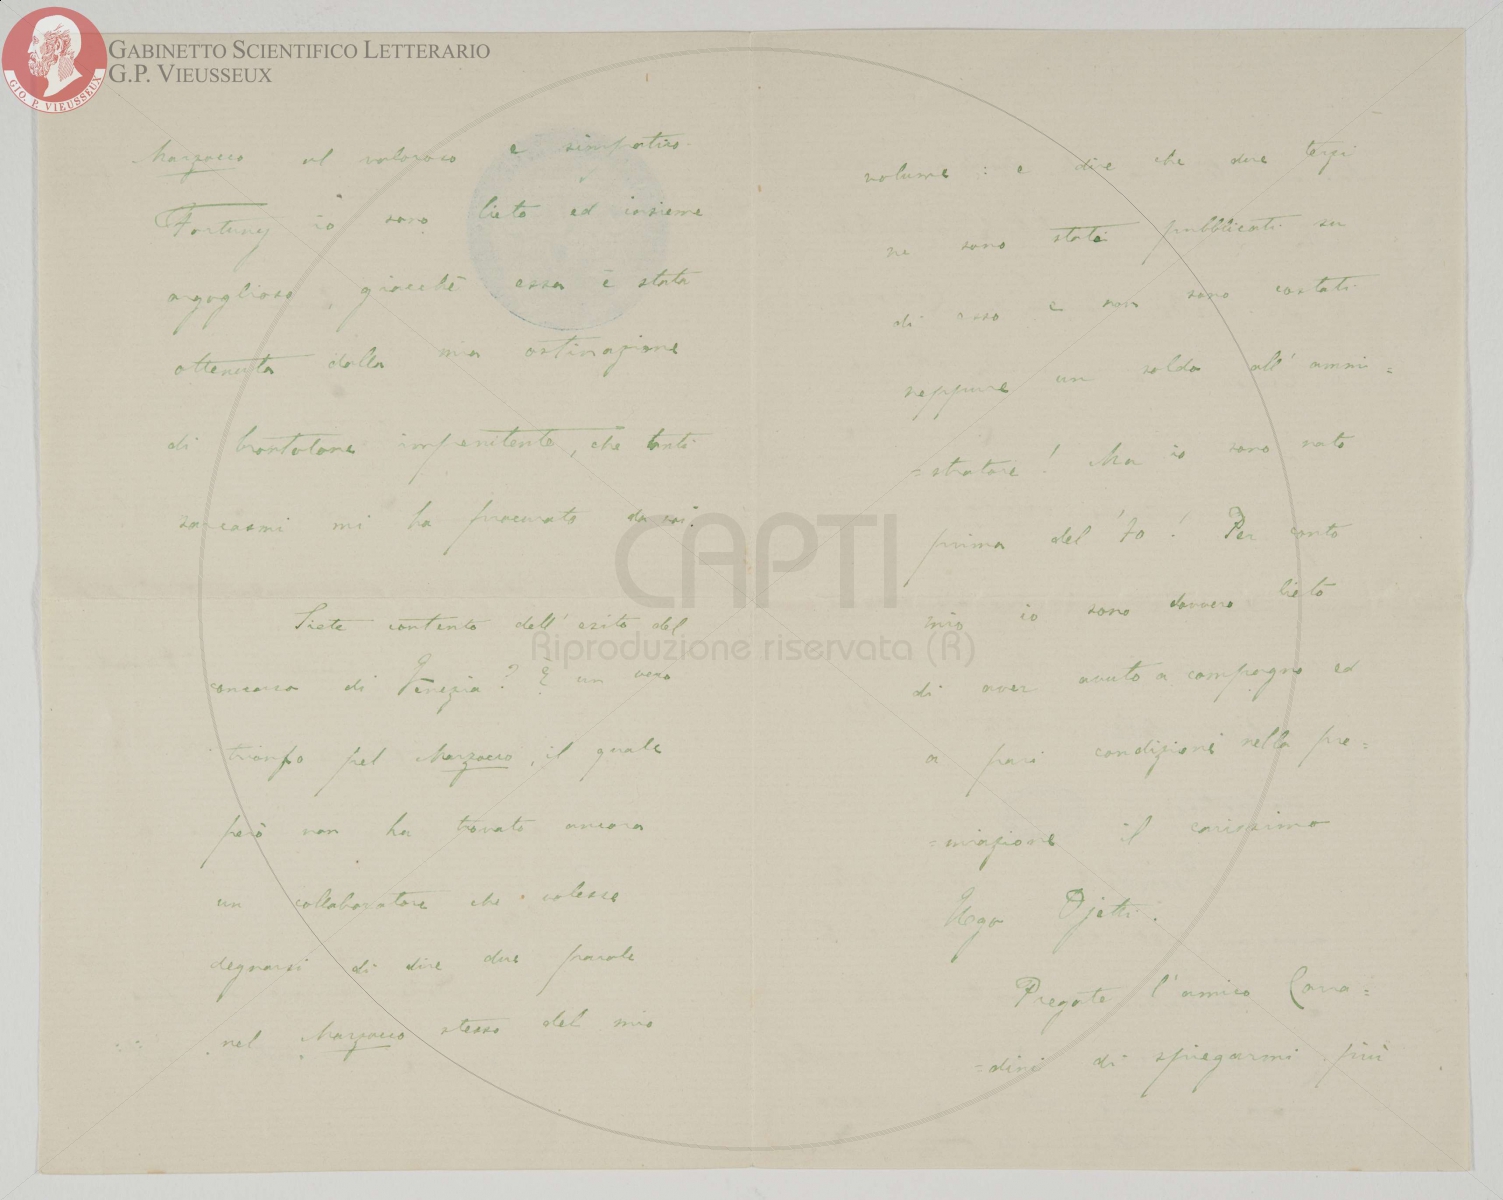 GABINETTO SCIENTIFICO LETTERARIO
G.P. VIEUSSEUX
GIO. P. VIEUSSEUX
Marzocco al valoroso e simpatico
Fortuny io sono lieto ed insieme
orgoglioso, giacchè essa è stata
ottenuta dalla mia ostinazione
di brontolone impenitente, che tanti
sarcasmi mi ha procurato da voi.
Siete contento dell'esito del
concorso di Venezia? È un vero
trionfo pel Marzocco, il quale
però non ha trovato ancora
un collaboratore che volesse
degnarsi di dire due parole
nel Marzocco stesso del mio
volume: e dire che due terzi
ne sono stati pubblicati su
di esso e non sono costati
neppure un soldo all'ammi=
=stratore! Ma io sono nato
prima del '70! Per conto
mio io sono davvero lieto
di aver avuto a compagno ed
a pari condizioni nella pre=
=miazione il carissimo
Ugo Ojetti.
Pregate l'amico Corra=
=dini di spiegarmi più
CAPTI
Riproduzione riservata (R)